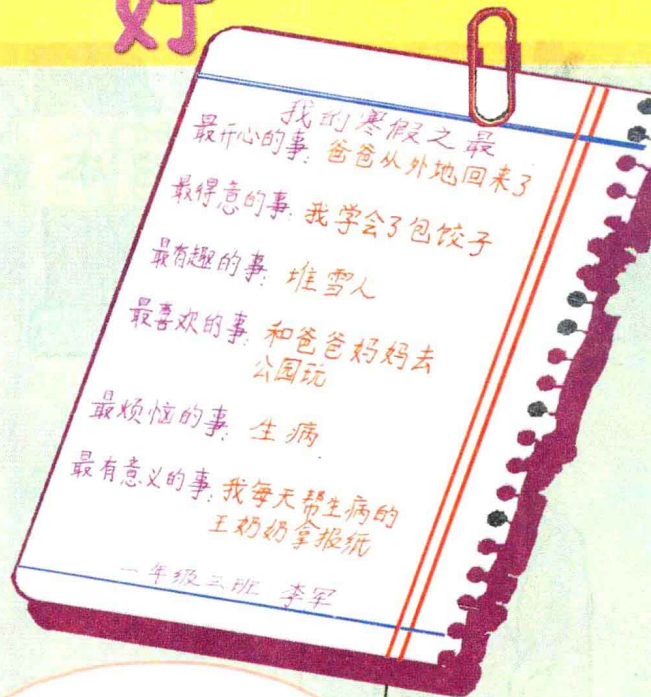 好
我的寒假之最
最开心的事:爸爸从外地回来了
最得意的事:我学会了包饺子
最有趣的事:堆雪人
最喜欢的事:和爸爸妈妈去
公园玩
最烦恼的事:生病
最有意义的事:我每天帮生病的
王奶奶拿报纸
一年级三班 李军